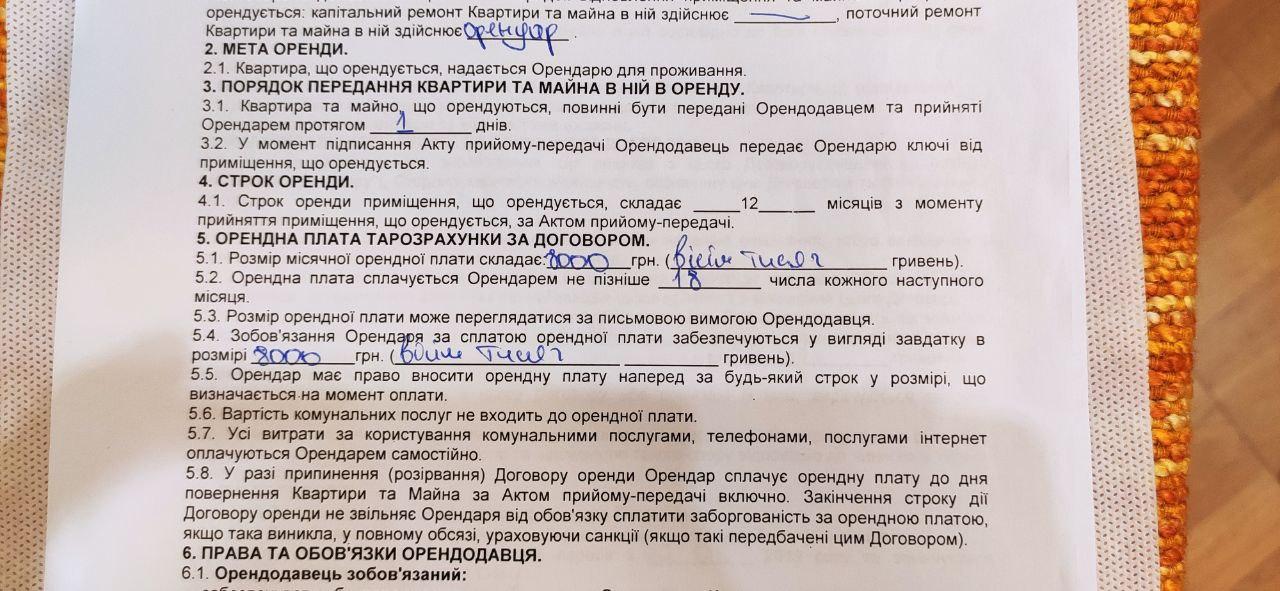 орендується: капітальний ремонт Квартири та майна в ній здійснює ____________, поточний ремонт
Квартири та майна в ній здійснює орендар .
2. МЕТА ОРЕНДИ.
2.1. Квартира, що орендується, надається Орендарю для проживання.
3. ПОРЯДОК ПЕРЕДАННЯ КВАРТИРИ ТА МАЙНА В НІЙ В ОРЕНДУ.
3.1. Квартира та майно, що орендуються, повинні бути передані Орендодавцем та прийняті
Орендарем протягом ____1____ днів.
3.2. У момент підписання Акту прийому-передачі Орендодавець передає Орендарю ключі від
приміщення, що орендується.
4. СТРОК ОРЕНДИ.
4.1. Строк оренди приміщення, що орендується, складає _____12______ місяців з моменту
прийняття приміщення, що орендується, за Актом прийому-передачі.
5. ОРЕНДНА ПЛАТА ТАРОЗРАХУНКИ ЗА ДОГОВОРОМ.
5.1. Розмір місячної орендної плати складає: 8000 грн. (вісім тисяч гривень).
5.2. Орендна плата сплачується Орендарем не пізніше 18 числа кожного наступного
місяця.
5.3. Розмір орендної плати може переглядатися за письмовою вимогою Орендодавця.
5.4. Зобов'язання Орендаря за сплатою орендної плати забезпечуються у вигляді завдатку в
розмірі 8000 грн. (вісім тисяч гривень).
5.5. Орендар має право вносити орендну плату наперед за будь-який строк у розмірі, що
визначається на момент оплати.
5.6. Вартість комунальних послуг не входить до орендної плати.
5.7. Усі витрати за користування комунальними послугами, телефонами, послугами інтернет
оплачуються Орендарем самостійно.
5.8. У разі припинення (розірвання) Договору оренди Орендар сплачує орендну плату до дня
повернення Квартири та Майна за Актом прийому-передачі включно. Закінчення строку дії
Договору оренди не звільняє Орендаря від обов'язку сплатити заборгованість за орендною платою,
якщо така виникла, у повному обсязі, ураховуючи санкції (якщо такі передбачені цим Договором).
6. ПРАВА ТА ОБОВ'ЯЗКИ ОРЕНДОДАВЦЯ.
6.1. Орендодавець зобов'язаний: